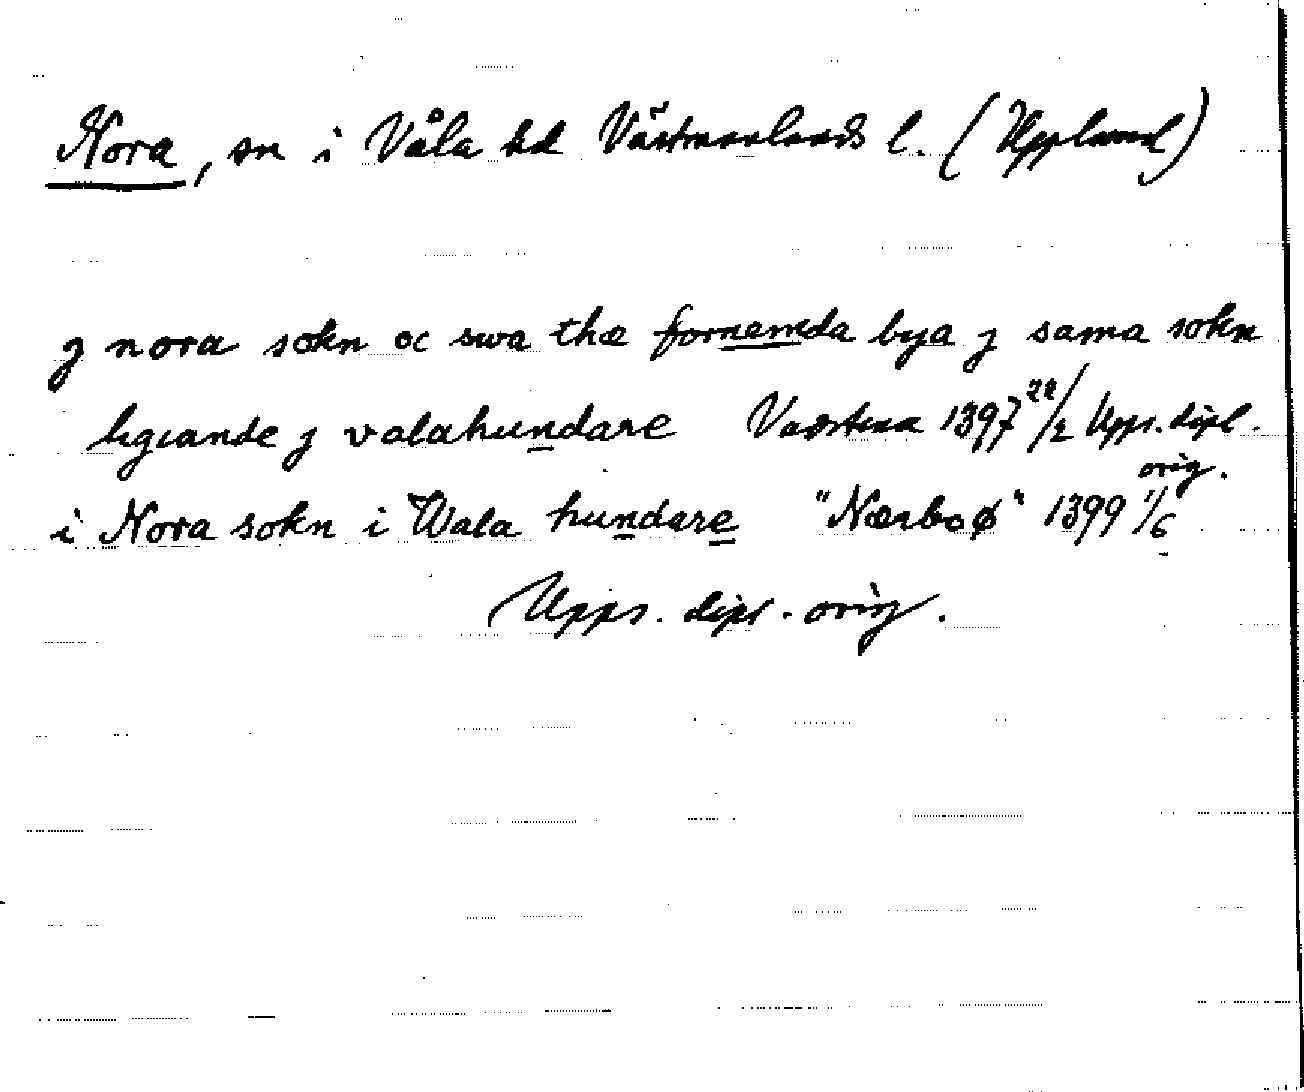 Nora, sn i Våla hd Västmanlands l. (Uppland)
j nora sokn oc swa the fornemda bya j sama sokn
ligiande j valahundare Væstena 1397 22/2 Upps. dipl.
orig.
i Nora sokn i Wala hundare "Nærboø" 1399 1/6
Upps. dipl. orig.